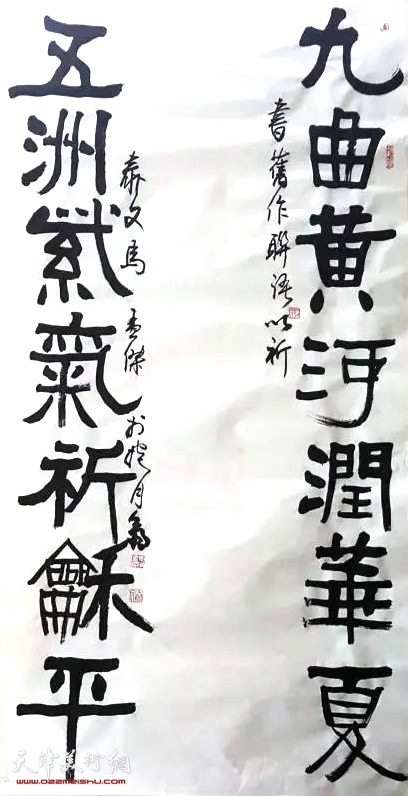 九曲黄河潤華夏
書舊作聯語以祈
五洲紫氣祈龢平
泰文馬孟傑於抱月
天津美術網
www.022meishu.com